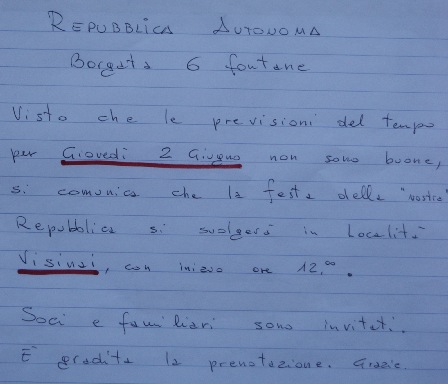 REPUBBLICA AUTONOMA
Borgata 6 fontane
Visto che le previsioni del tempo
per Giovedì 2 Giugno non sono buone,
si comunica che la festa della "nostra"
Repubblica si svolgerà in Località
Visinsi, con inizio ore 12,°°.
Soci e familiari sono invitati.
È gradita la prenotazione. Grazie.